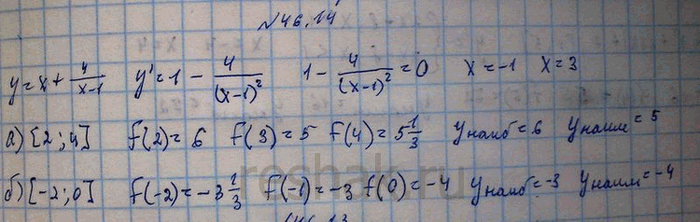 №46.14
y=x+4/(x-1) y'=1-4/(x-1)² 1-4/(x-1)²=0 x=-1 x=3
а) [2;4] f(2)=6 f(3)=5 f(4)=5 1/3 yнаиб=6 yнаим=5
б) [-2;0] f(-2)=-3 1/3 f(-1)=-3 f(0)=-4 yнаиб=-3 yнаим=-4
reshak.ru